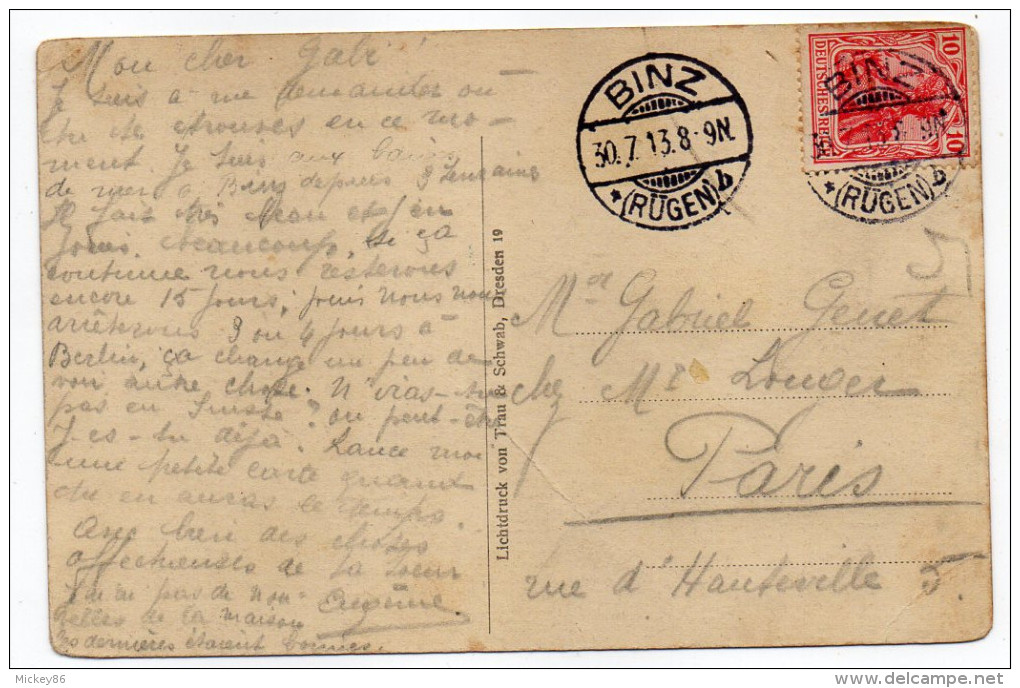 Mon cher Gabi
Je suis à me demander où
tu te trouves en ce mo-
ment. Je suis aux bains
de mer à Binz depuis 3 semaines
Il fait très beau et j'en
jouis beaucoup, si ça
continue nous resterons
encore 15 jours, puis nous nous
arrêterons 3 ou 4 jours à
Berlin, ça change un peu de
voir autre chose. N'iras-tu
pas en Suisse? ou peut-être
y-es-tu déjà. Lance moi
une petite carte quand
tu en auras le temps.
bien des choses
affectueuses de ta soeur
Eugénie.
J'ai eu pas de nou-
velles de la maison
les dernières étaient bonnes.
Lichtdruck von Trau & Schwab, Dresden 19
BINZ
30.7.13.8-9N.
* (RÜGEN) b
DEUTSCHES REICH
10
10
BINZ
(RÜGEN) b
Mr Gabriel Genet
chez Mr Longer
Paris
rue d'Hauteville 5.
Mickey86